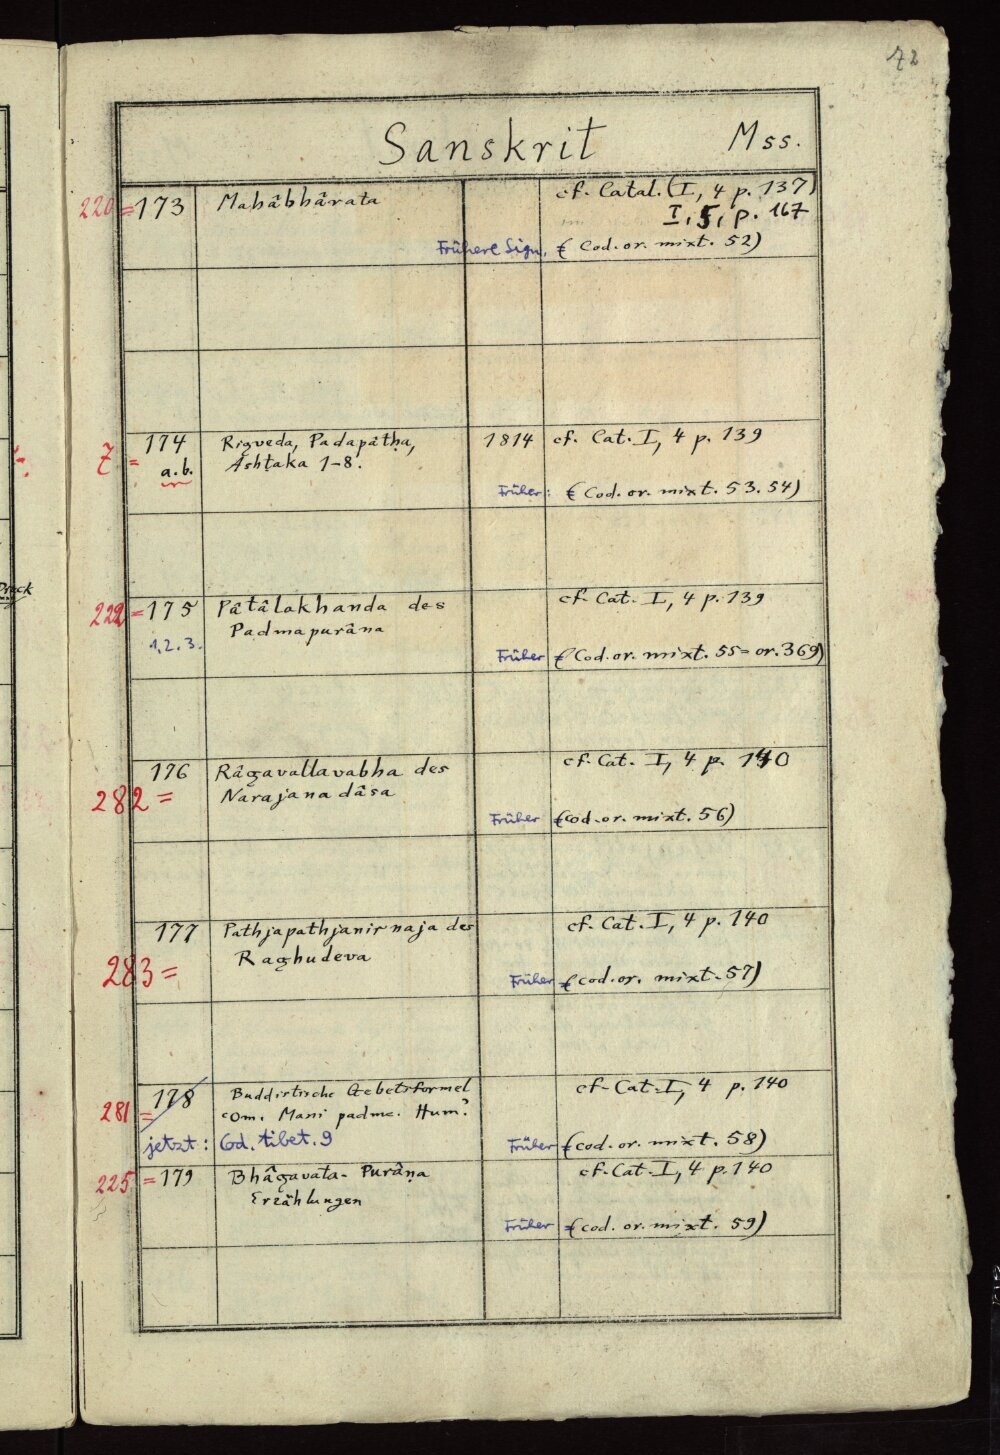 72
Sanskrit Mss.
220 = 173 Mahâbhârata cf. Catal. (I, 4 p. 137)
I, 5, p. 167
Frühere Sign. (Cod. or. mixt. 52)
7 = 174 Rigveda, Padapâṭha, 1814 cf. Cat. I, 4 p. 139
a. b. Ashṭaka 1-8.
Früher: (Cod. or. mixt. 53. 54)
222 = 175 Pâtâlakhanda des cf. Cat. I, 4 p. 139
Padmapurâna
1. 2. 3. Früher (Cod. or. mixt. 55 = or. 369)
176 Râgavallavabha des cf. Cat. I, 4 p. 140
282 = Narajana dâsa
Früher (Cod. or. mixt. 56)
177 Pathjapathjanirnaja des cf. Cat. I, 4 p. 140
283 = Raghudeva
Früher (cod. or. mixt. 57)
178 Buddistische Gebetsformel cf. Cat. I, 4 p. 140
281 = Om. Mani padme. Hum?
jetzt: Cod. tibet. 9 Früher (cod. or. mixt. 58)
225 = 179 Bhâgavata-Purâṇa cf. Cat. I, 4 p. 140
Erzählungen
Früher (cod. or. mixt. 59)